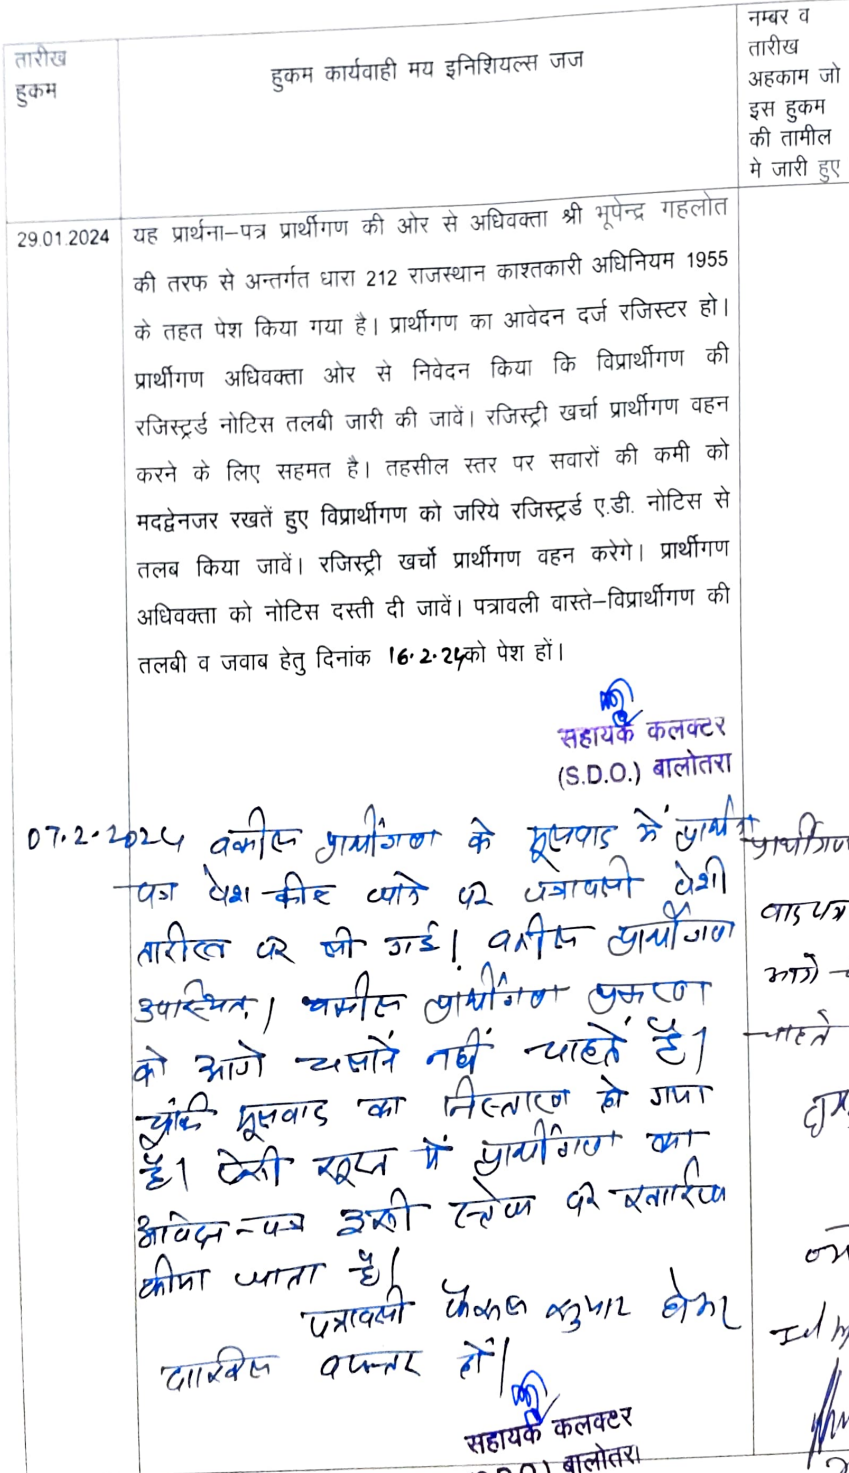 तारीख
हुकम
हुकम कार्यवाही मय इनिशियल्स जज
नम्बर व
तारीख
अहकाम जो
इस हुकम
की तामील
मे जारी हुए
29.01.2024
यह प्रार्थना–पत्र प्रार्थीगण की ओर से अधिवक्ता श्री भूपेन्द्र गहलोत
की तरफ से अन्तर्गत धारा 212 राजस्थान काश्तकारी अधिनियम 1955
के तहत पेश किया गया है। प्रार्थीगण का आवेदन दर्ज रजिस्टर हो।
प्रार्थीगण अधिवक्ता ओर से निवेदन किया कि विप्रार्थीगण की
रजिस्ट्रर्ड नोटिस तलबी जारी की जावें। रजिस्ट्री खर्चा प्रार्थीगण वहन
करने के लिए सहमत है। तहसील स्तर पर सवारों की कमी को
मदद्वेनजर रखतें हुए विप्रार्थीगण को जरिये रजिस्ट्रर्ड ए.डी. नोटिस से
तलब किया जावें। रजिस्ट्री खर्चो प्रार्थीगण वहन करेगे। प्रार्थीगण
अधिवक्ता को नोटिस दस्ती दी जावें। पत्रावली वास्ते–विप्रार्थीगण की
तलबी व जवाब हेतु दिनांक 16.2.24को पेश हों।
सहायक कलक्टर
(S.D.O.) बालोतरा
07.2.2024 वकील प्रार्थीगण के मूलवाद में प्रार्थना
पत्र पेश कीए जाने पर पत्रावली पेशी
तारीख पर ली गई। वकील प्रार्थीगण
उपस्थित। वकील प्रार्थीगण प्रकरण
को आगे चलाने नहीं चाहते है।
चूंकि मूलवाद का निस्तारण हो गया
है। ऐसी सूरत में प्रार्थीगण का
आवेदन-पत्र इसी स्टेज पर खारिज
कीया जाता है।
पत्रावली फैसल शुमार होकर
दाखिल दफ्तर हों।
सहायक कलक्टर
बालोतरा
प्रार्थीगण
वादपत्र
आगे
चाहते